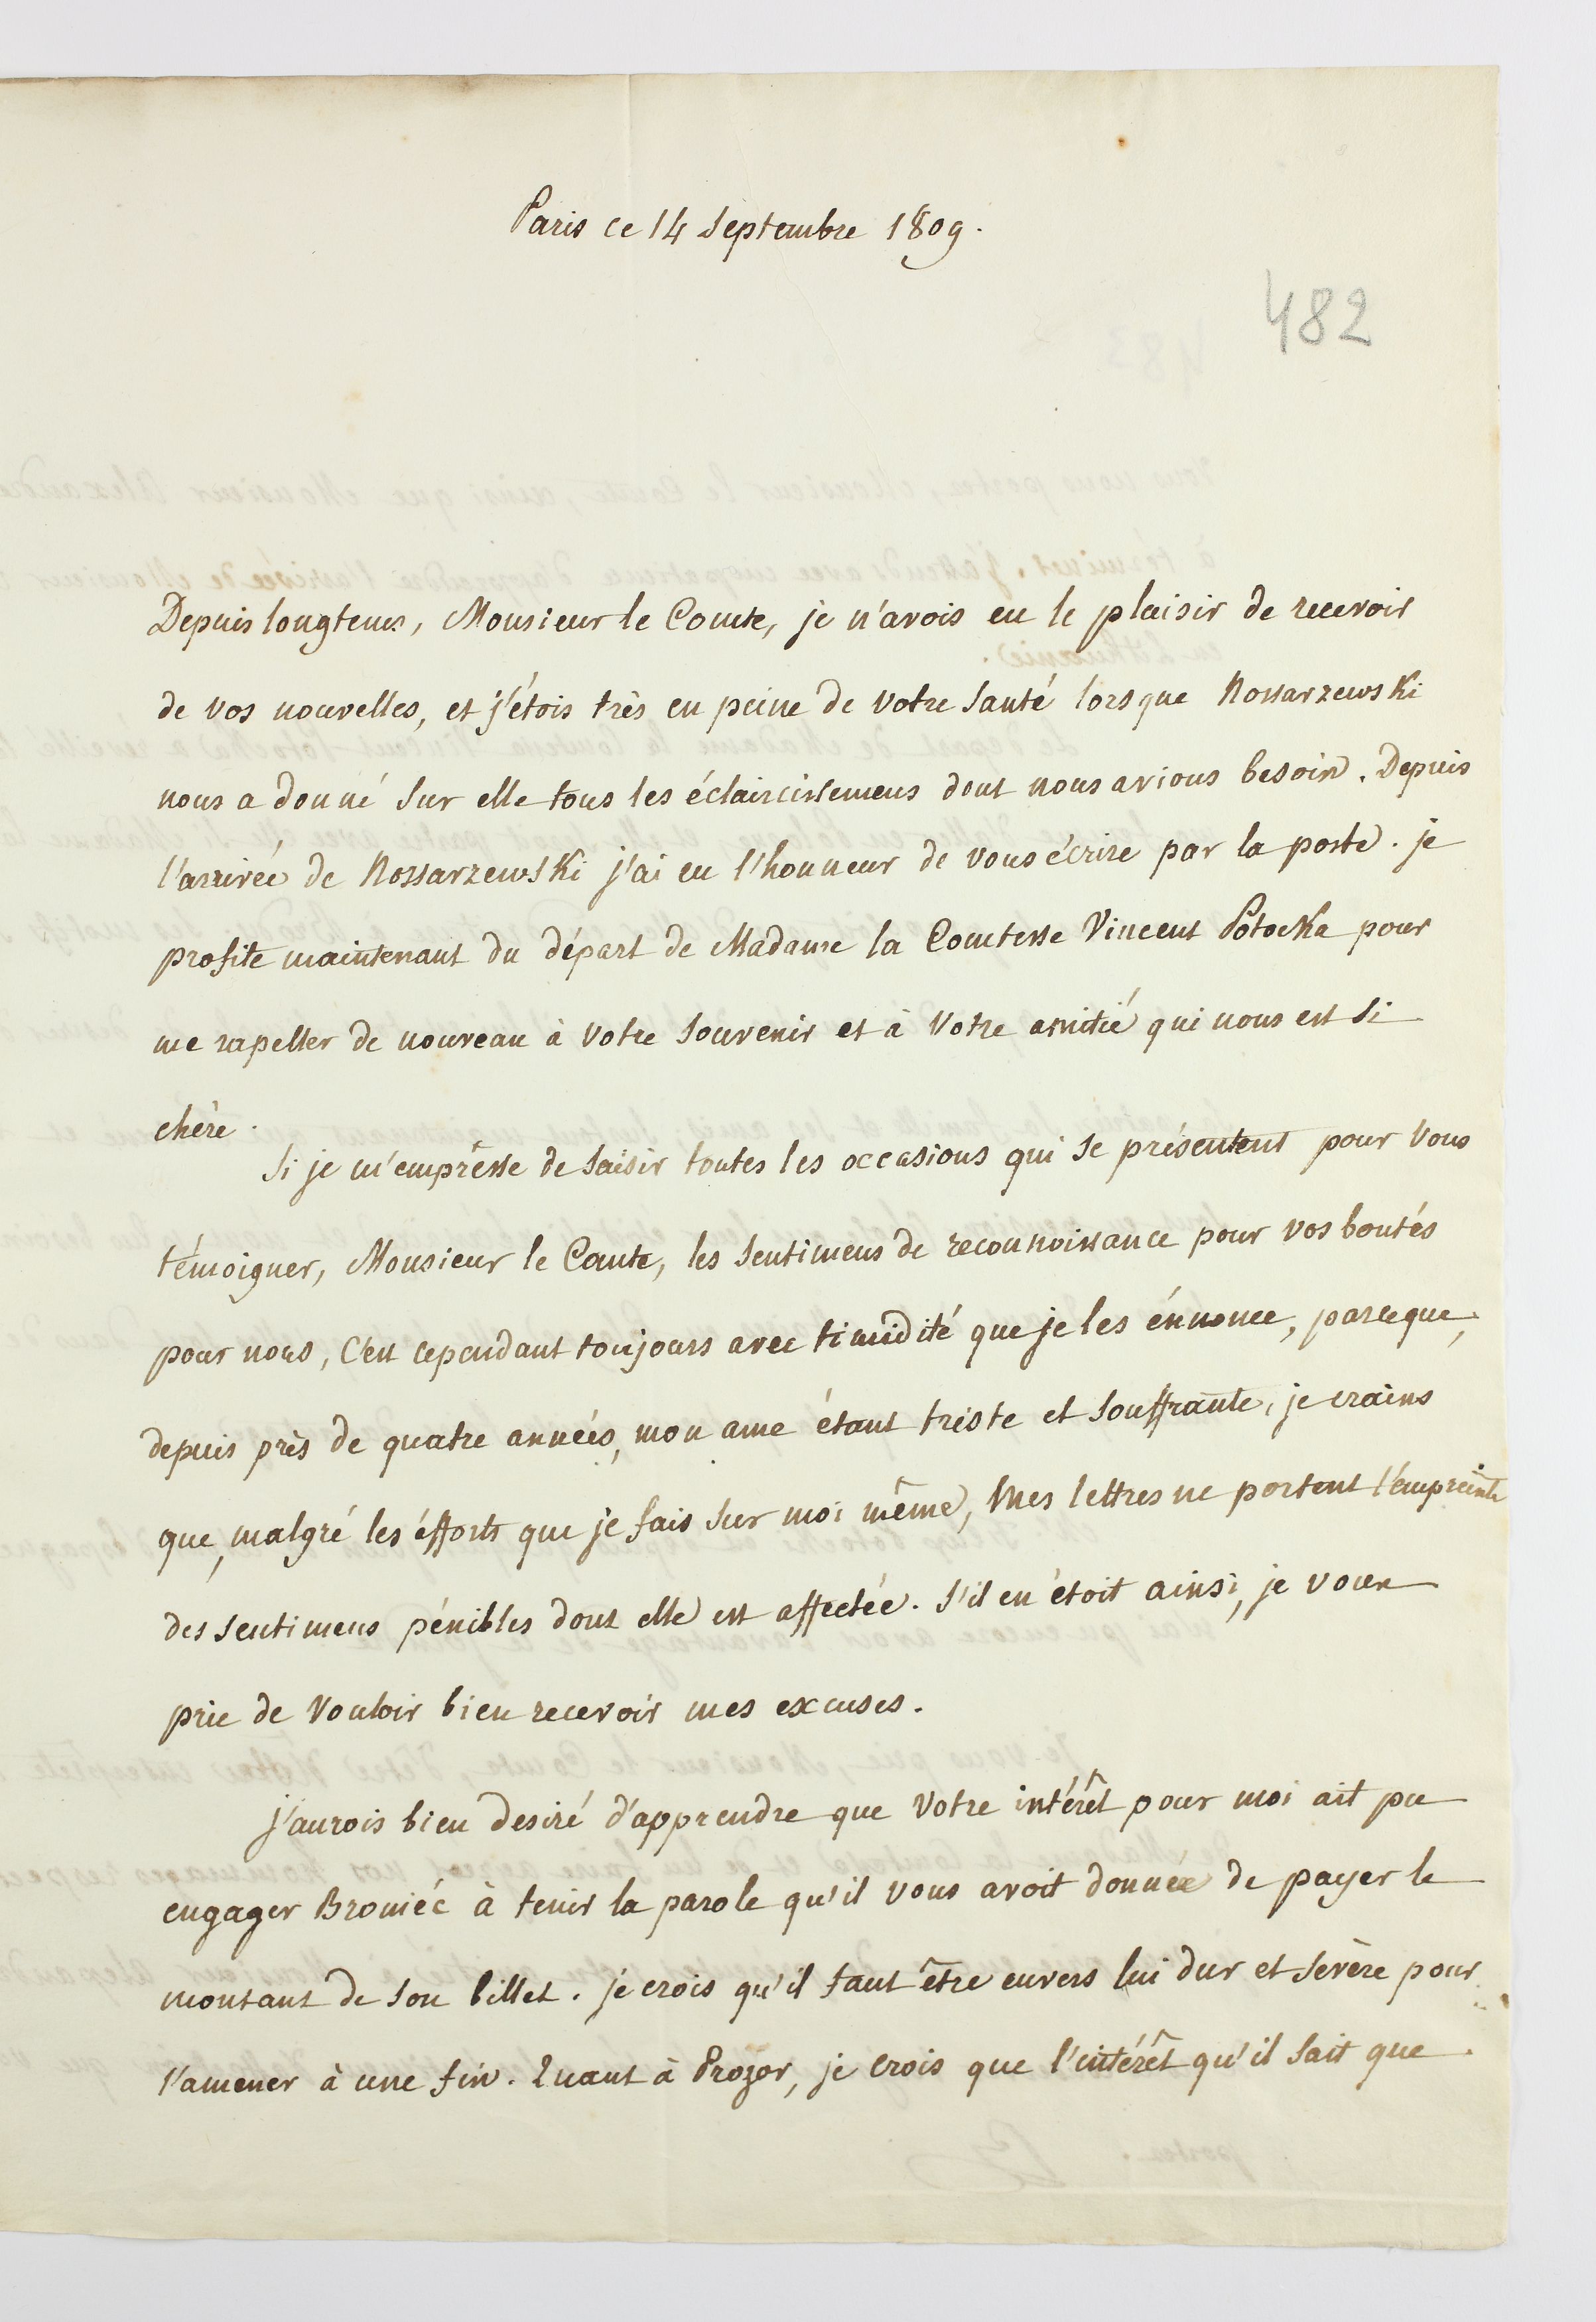 Paris ce 14 Septembre 1809.
482
Depuis longtems, Monsieur le Comte, je n'avois eu le plaisir de recevoir
de vos nouvelles, et j'étois très en peine de votre santé lorsque Nossarzewski
nous a donné sur elle tous les éclaircissemens dont nous avions besoin. Depuis
l'arrivée de Nossarzewski j'ai eu l'honneur de vous écrire par la poste. je
profite maintenant du départ de Madame la Comtesse Vincent Potocka pour
me rapeller de nouveau à votre souvenir et à votre amitié qui nous est si
chère.
Si je m'emprèsse de saisir toutes les occasions qui se présentent pour vous
témoigner, Monsieur le Comte, les sentimens de reconnoissance pour vos bontés
pour nous, c'est cependant toujours avec timidité que je les énnonce, parceque,
depuis près de quatre années, mon ame étant triste et souffrante, je crains
que, malgré les éfforts que je fais sur moi même, mes lettres ne portent l'empreinte
des sentimens pénibles dont elle est affectée. S'il en étoit ainsi, je vous
prie de vouloir bien recevoir mes excuses.
j'aurois bien desiré d'apprendre que votre intérêt pour moi ait pu
engager Broniéc à tenir la parole qu'il vous avoit donnée de payer le
montant de son billet. je crois qu'il faut être envers lui dur et sevère pour
l'amener à une fin. Quant à Prozor, je crois que l'intérêt qu'il sait que